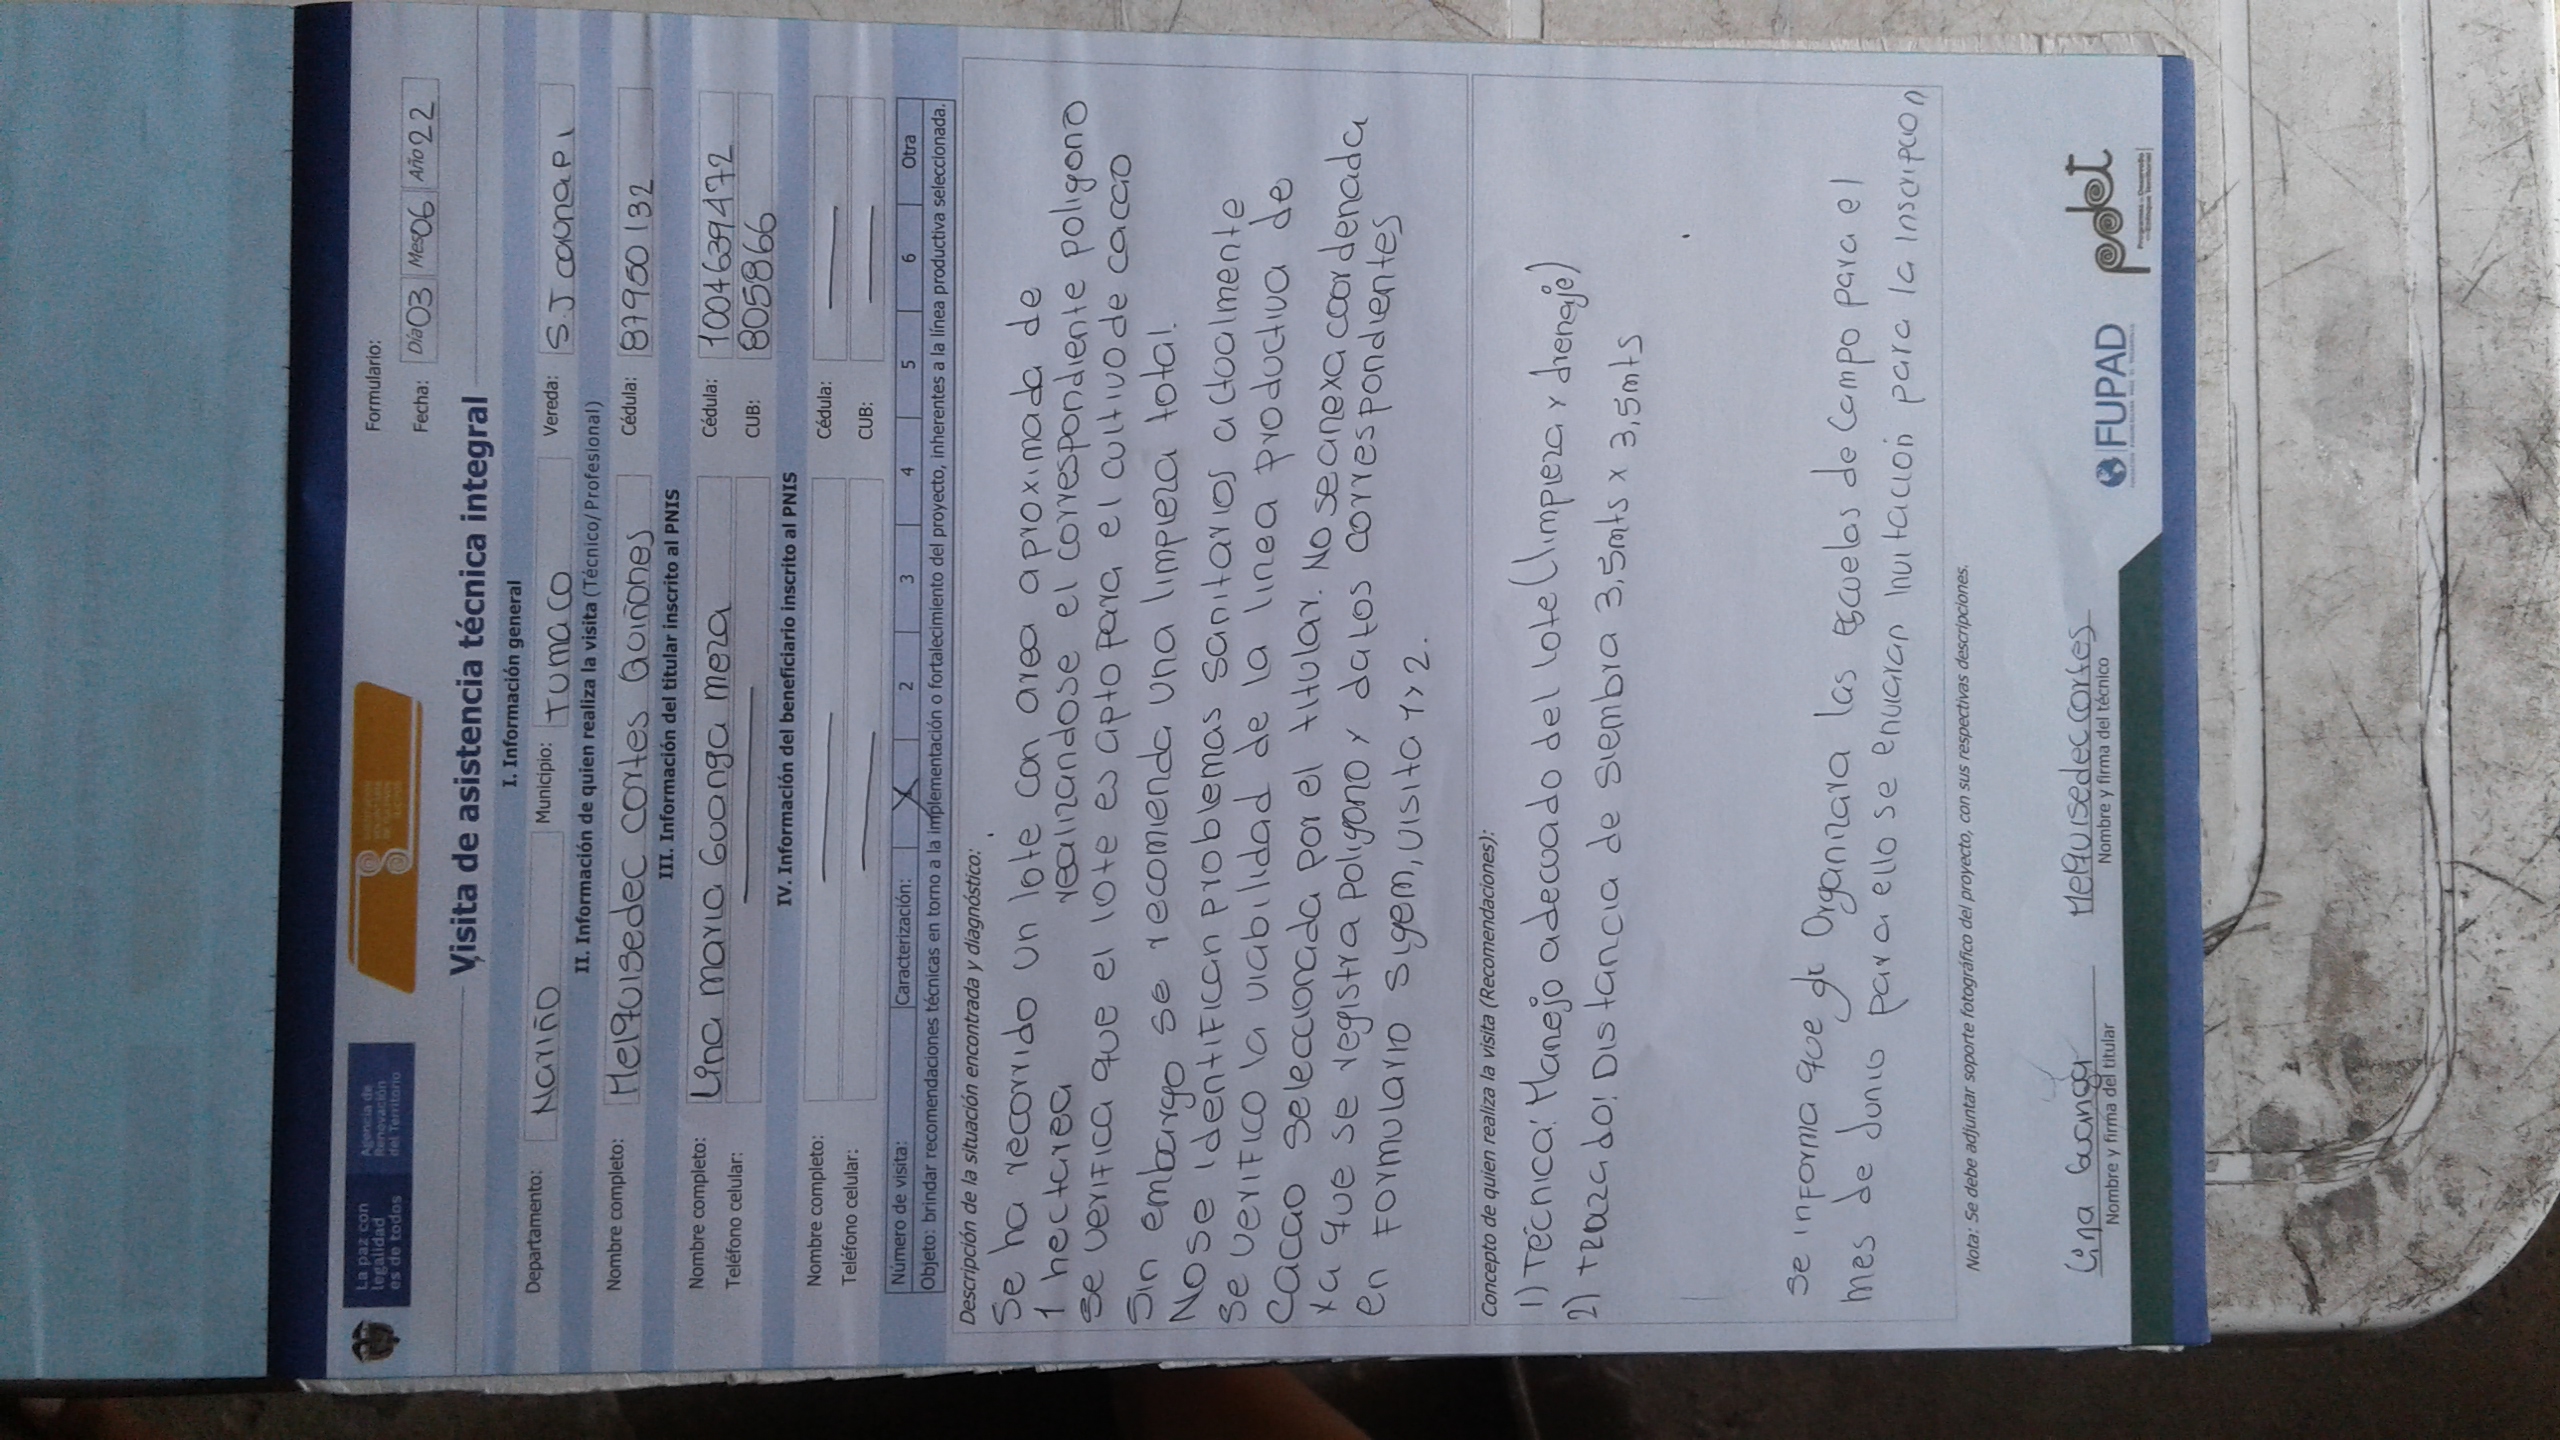 La paz con
legalidad
es de todos
Agencia de
Renovación
del Territorio
Formulario:
Fecha: Día 03 Mes 06 Año 22
Visita de asistencia técnica integral
I. Información general
Departamento: Nariño Municipio: Tumaco Vereda: S.J caunapi
II. Información de quien realiza la visita (Técnico/Profesional)
Nombre completo: Melquisedec cortes Quiñones Cédula: 87950132
III. Información del titular inscrito al PNIS
Nombre completo: Lina maria Guanga meza Cédula: 1004639472
Teléfono celular: — CUB: 805866
IV. Información del beneficiario inscrito al PNIS
Nombre completo: — Cédula: —
Teléfono celular: — CUB: —
Número de visita: Caracterización: X 2 3 4 5 6 Otra
Objeto: brindar recomendaciones técnicas en torno a la implementación o fortalecimiento del proyecto, inherentes a la línea productiva seleccionada.
Descripción de la situación encontrada y diagnóstico:
Se ha recorrido un lote con area aproximada de
1 hectarea realizandose el correspondiente poligono
se verifica que el lote es apto para el cultivo de cacao
Sin embargo se recomienda una limpieza total.
No se identifican problemas sanitarios actualmente
se verifico la viabilidad de la linea productiva de
cacao seleccionada por el titular. No se anexa coordenada
ya que se registra poligono y datos correspondientes
en formulario sygem, visita 1 y 2.
Concepto de quien realiza la visita (Recomendaciones):
1) Técnica: Manejo adecuado del lote (limpieza y drenaje)
2) trazado: Distancia de siembra 3,5mts x 3,5mts
se informa que se Organizara las escuelas de campo para el
mes de Junio para ello se enviaran invitación para la inscripcion
Nota: Se debe adjuntar soporte fotográfico del proyecto, con sus respectivas descripciones.
Lina Guanga
Nombre y firma del titular
Melquisedec cortes
Nombre y firma del técnico
FUPAD
pdet